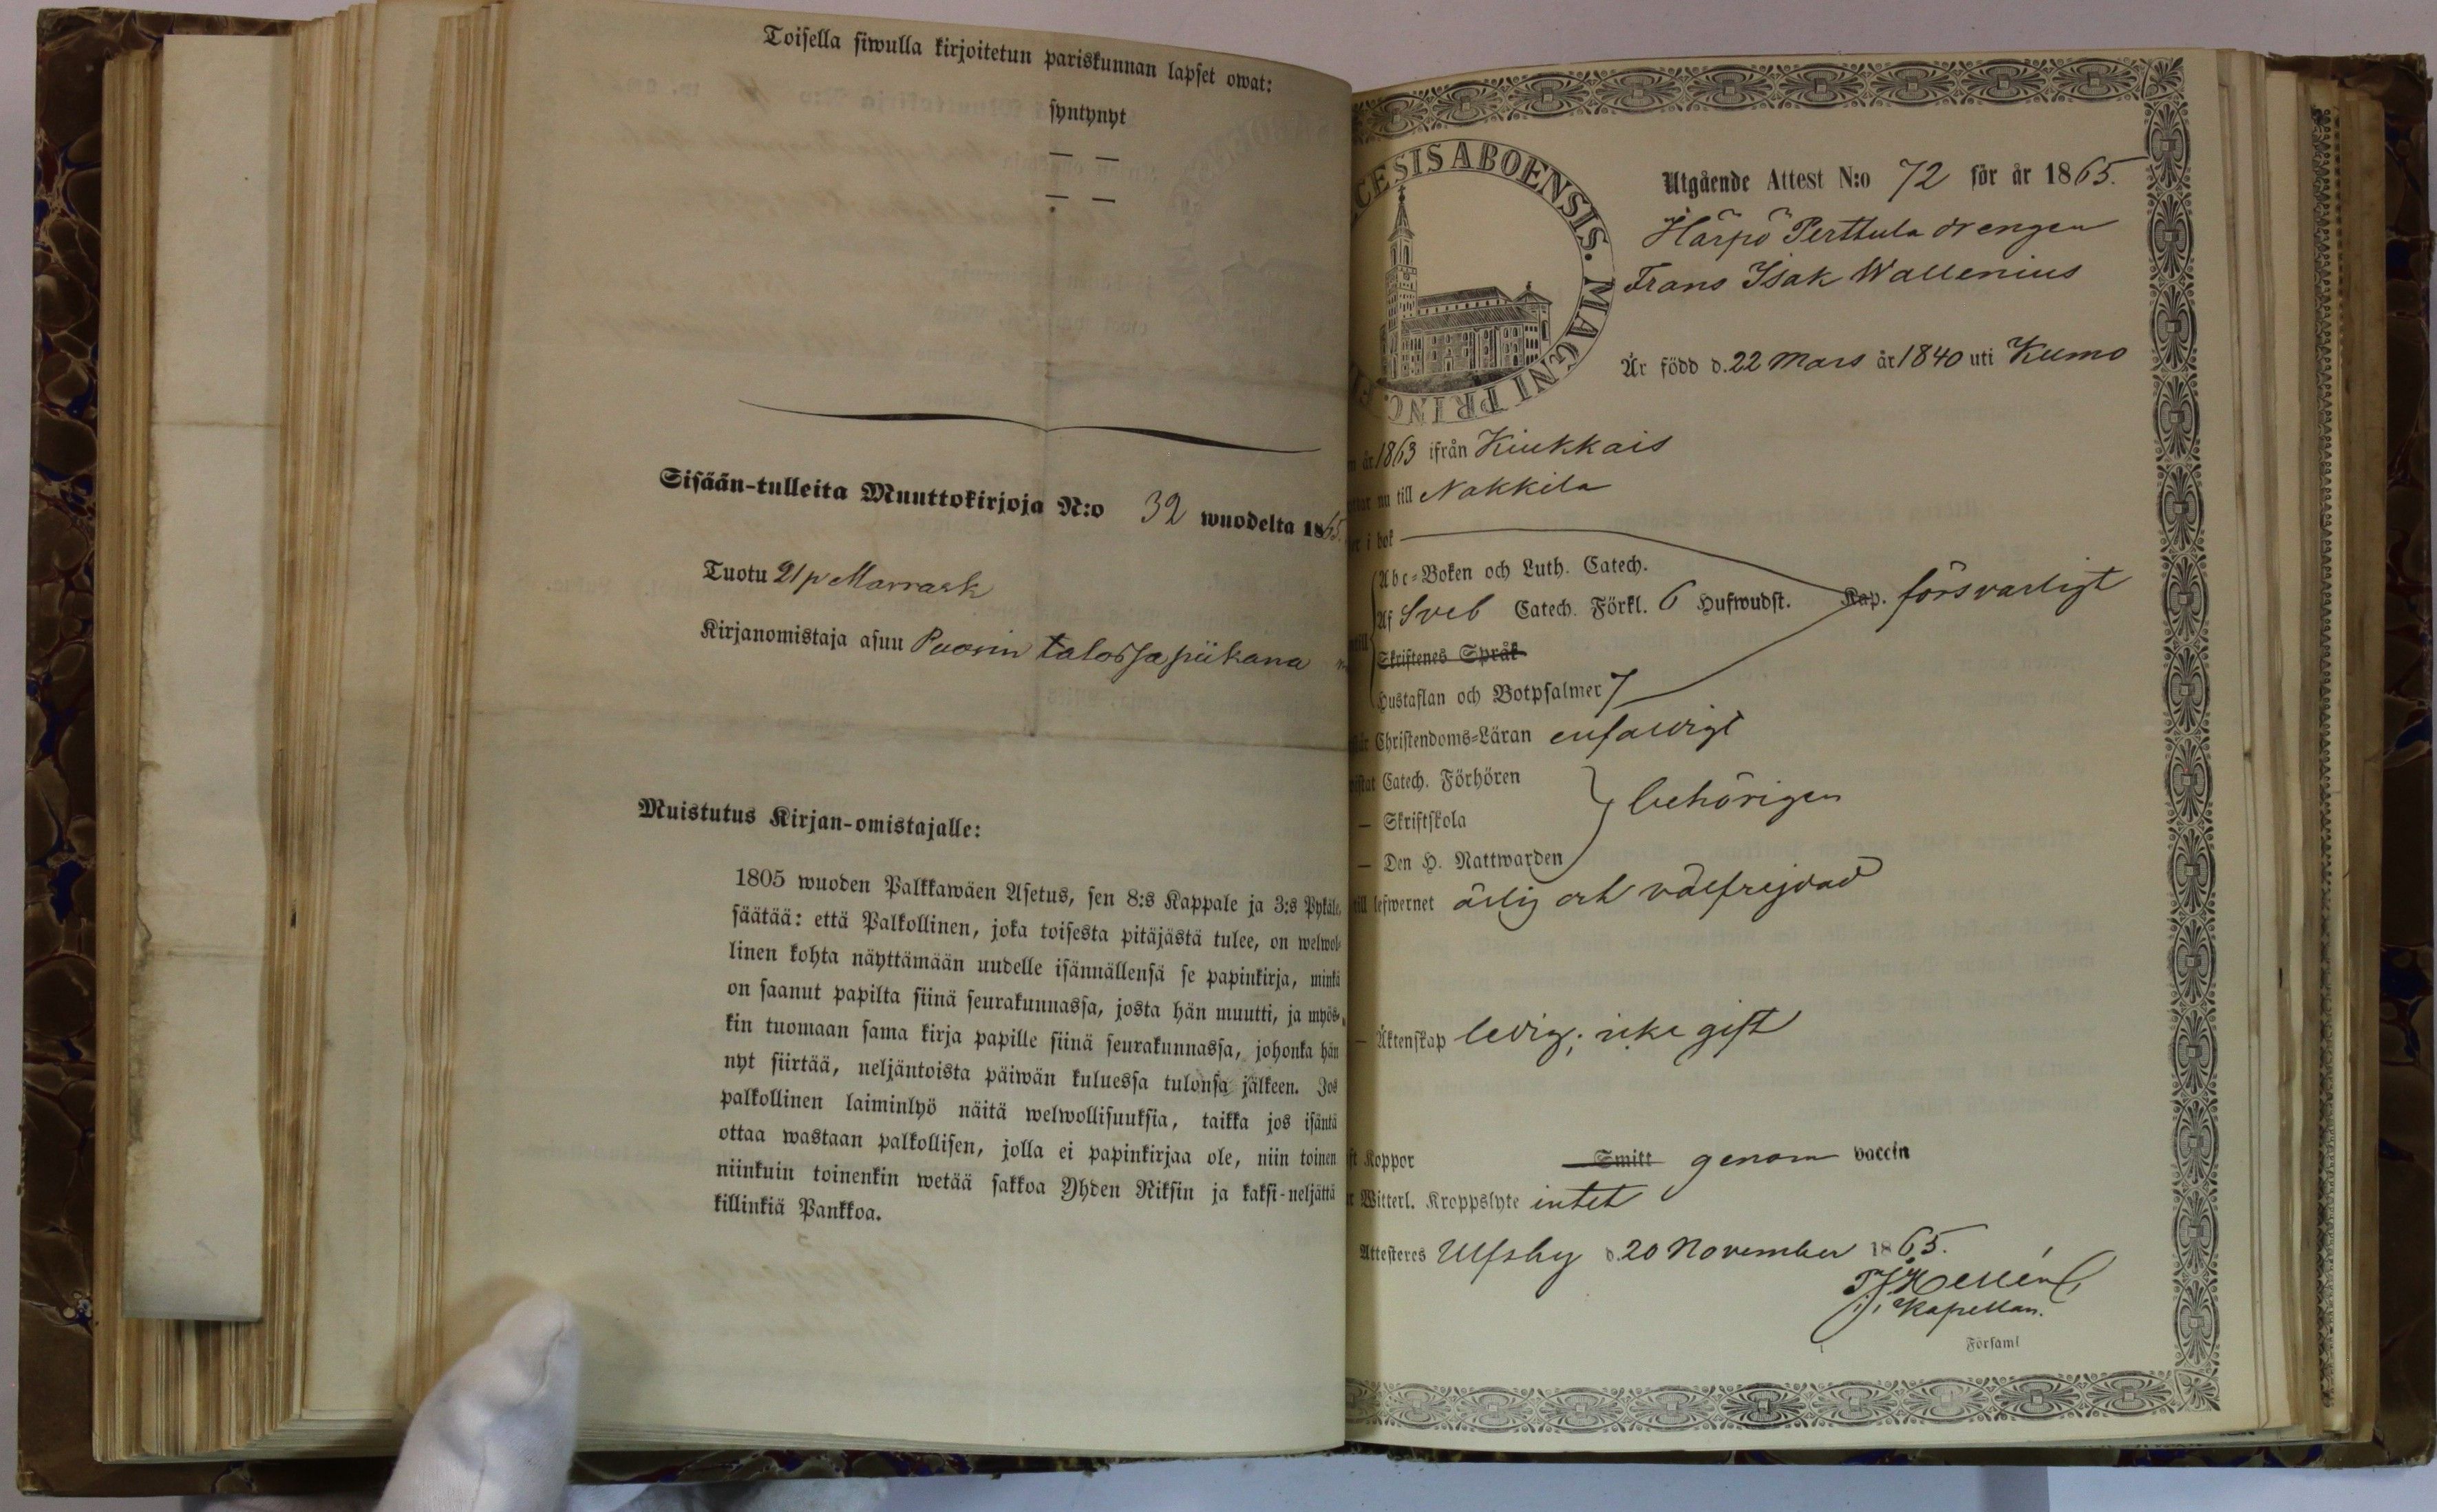 Toisella siwulla kirjoitetun pariskunnan lapset owat:
syntynyt
— —
— —
Sisään-tulleita Muuttokirjoja N:o 32 wuodelta 1865.
Tuotu 21 p Marrask
Kirjanomistaja asuu Puosin talossa piikana
Muistutus Kirjan-omistajalle:
1805 wuoden Palkkawäen Asetus, sen 8:s Kappale ja 3:s Pykälä,
säätää: että Palkollinen, joka toisesta pitäjästä tulee, on welwol-
linen kohta näyttämään uudelle isännällensä se papinkirja, minkä
on saanut papilta siinä seurakunnassa, josta hän muutti, ja myös-
kin tuomaan sama kirja papille siinä seurakunnassa, johonka hän
nyt siirtää, neljäntoista päiwän kuluessa tulonsa jälkeen. Jos
palkollinen laiminlyö näitä welwollisuuksia, taikka jos isäntä
ottaa wastaan palkollisen, jolla ei papinkirjaa ole, niin toinen
niinkuin toinenkin wetää sakkoa Yhden Riksin ja kaksi-neljättä
killinkiä Pankkoa.
CESIS ABOENSIS. MAGNI PRINC.
Utgående Attest N:o 72 för år 1865.
Härpö Perttula drengen
Frans Isak Wallenius
Är född d. 22 Mars år 1840 uti Kumo
år 1863 ifrån Kiukkais
nu till Nakkila
i bok
Abc-Boken och Luth. Catech.
Af Sveb Catech. Förkl. 6 Hufwudst. Kap. försvarligt
Skriftenes Språk
Hustaflan och Botpsalmer 7
Christendoms-Läran enfaldigt
Catech. Förhören
— Skriftskola
behörigen
— Den H. Nattwarden
till lefwernet ärlig och välfrejdad
— Äktenskap ledig; icke gift
Koppor Smitt genom vaccin
Witterl. Kroppslyte intet
Attesteres Ulfsby d. 20 November 1865.
Kapellan.
Församl